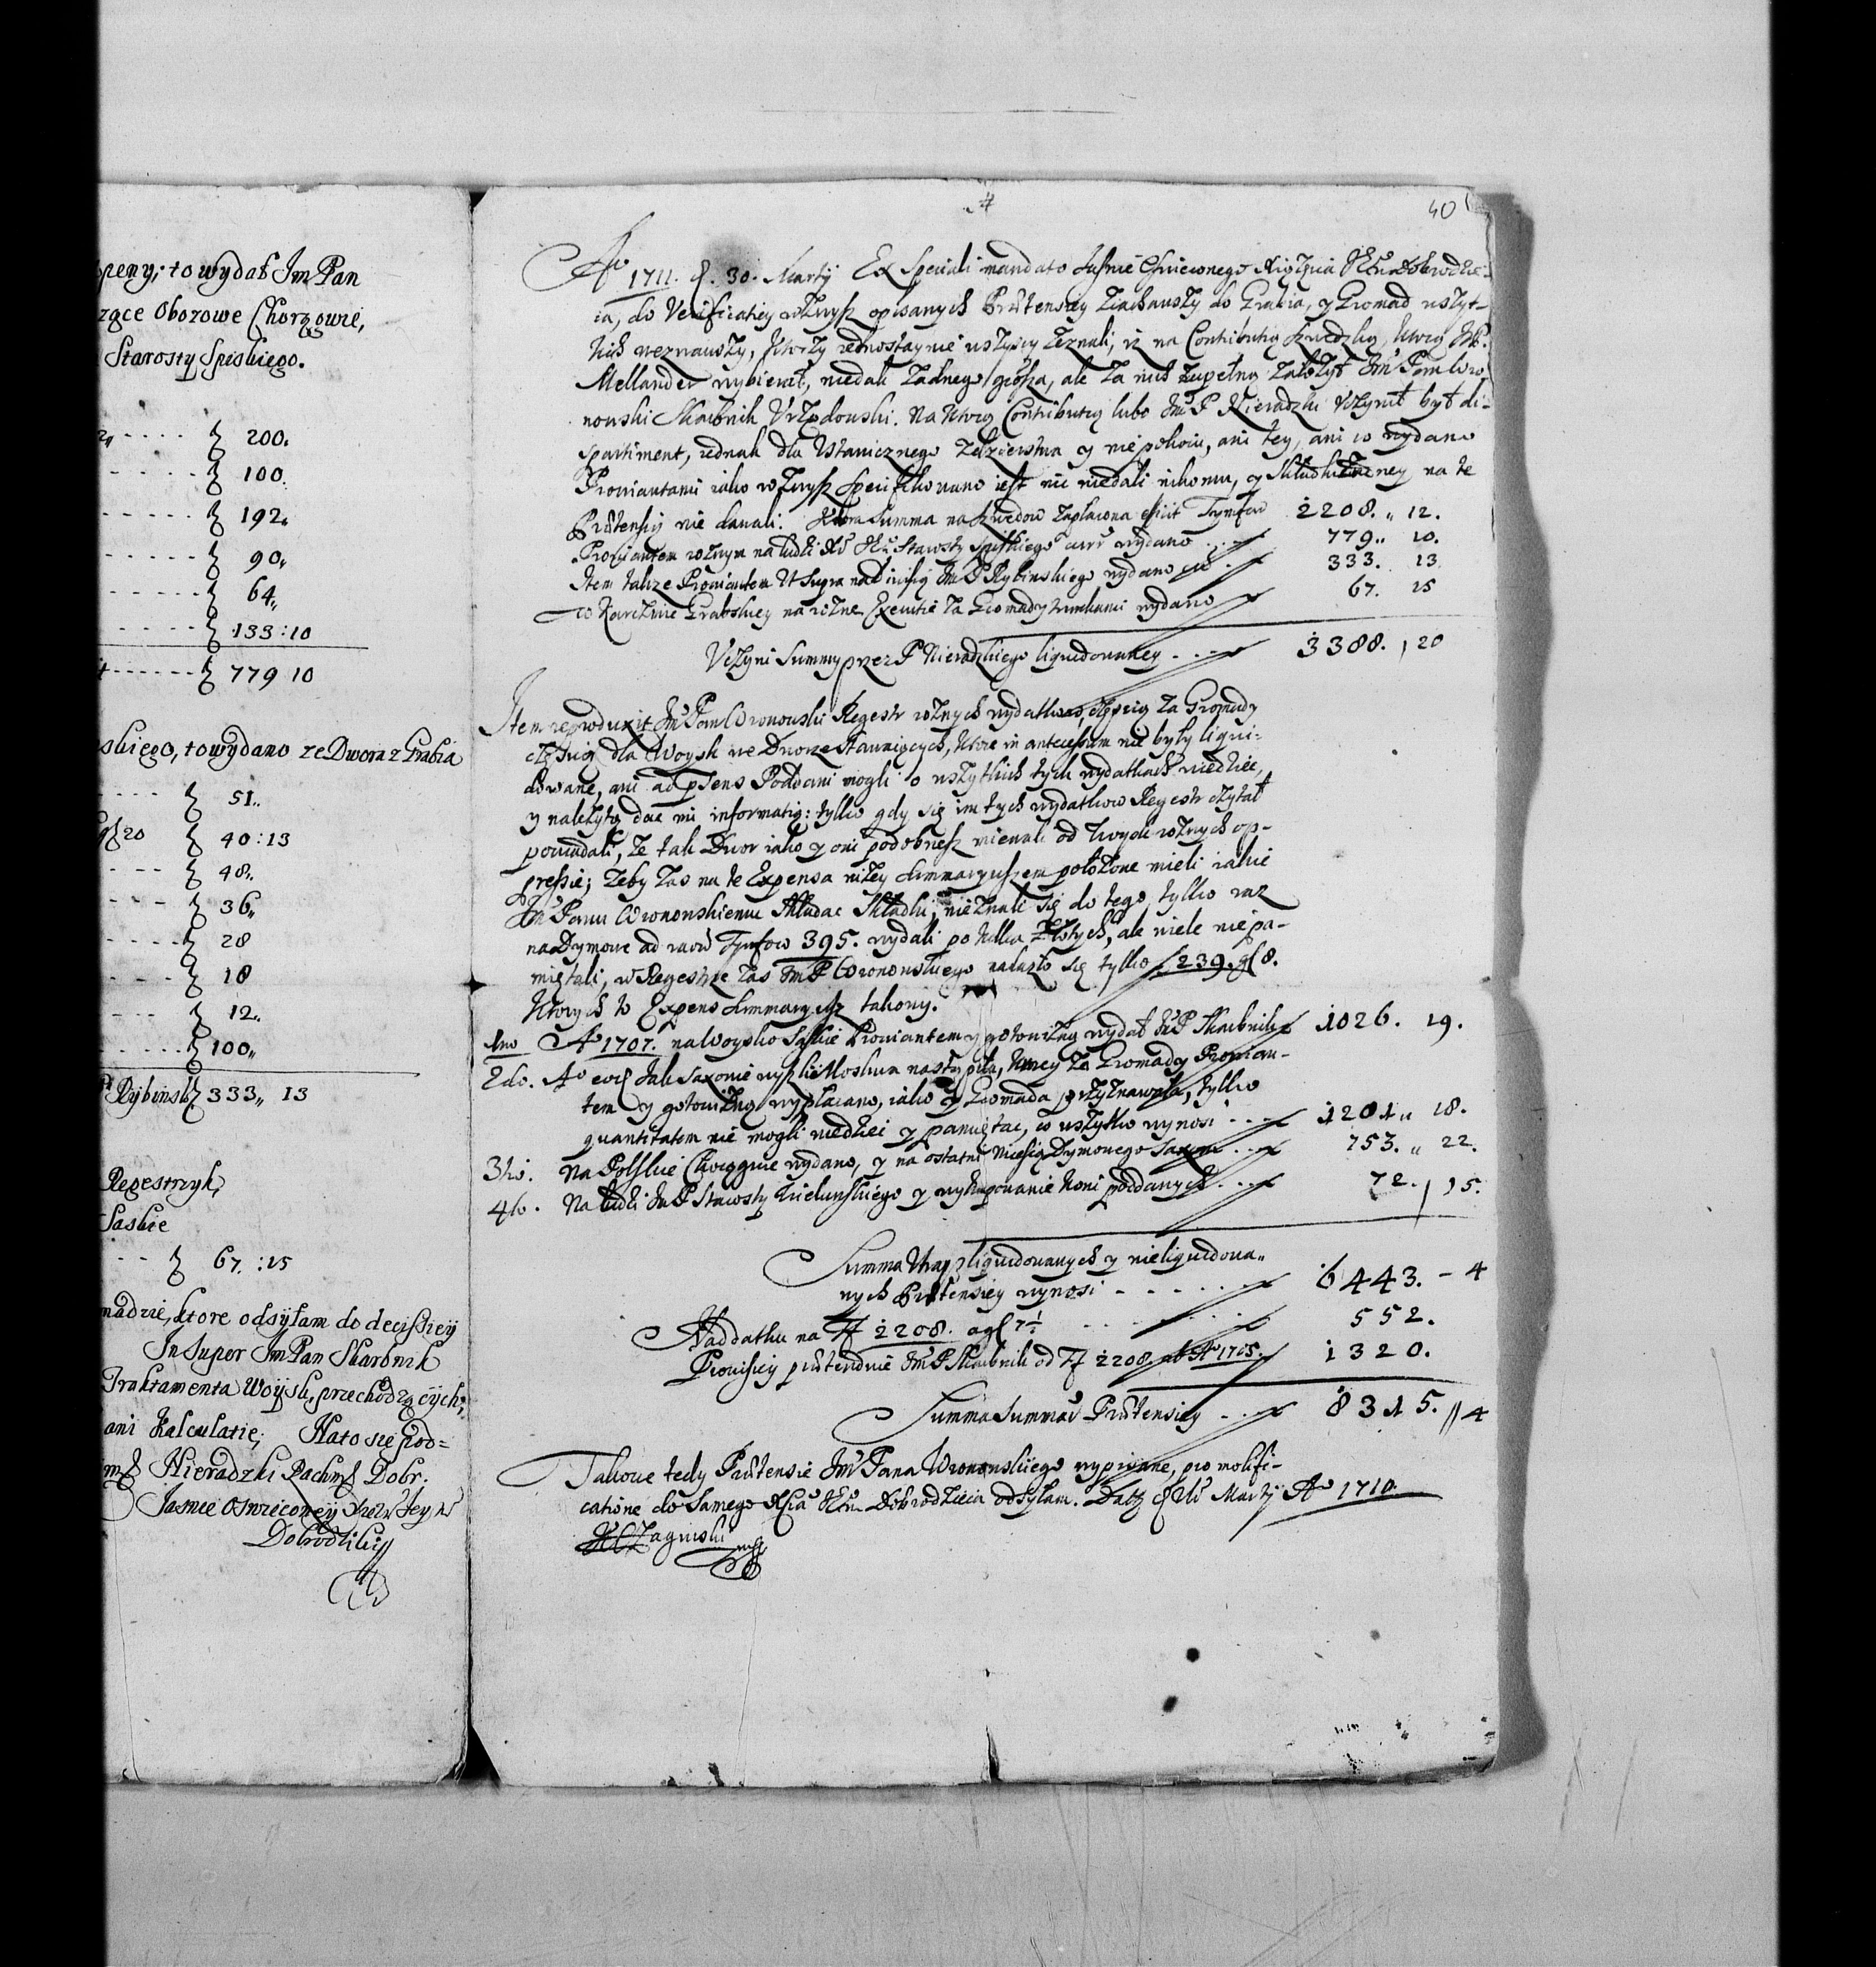 peny; to wydał Jm Pan
rzące Oborowe Chorągwie,
Starosty Spiskiego.
200.
100.
192.
90.
64.
133:10
779 10
skiego, to wydano ze Dwora z Grabia
51.
20 40:13
48.
36.
28
18
12.
100.
P Rybinsk 333 13
Regestrzyk,
Saskie
67. :15
madzie, ktore odsyłam do decisiey
In super Jm Pan Skarbnik
Traktamenta Woysk, przechodzących,
ani kalculatie; Na to się pod=
Nieradzki Dobr.
Jasnie oswieconey
Dobrodziki
40
Ao 1711. d. 30. Martij Ex Speciali mandato Jasnie Oswieconego Xiążęcia Dobrodzie-
ia, do Verificatiey wyzwysz opisanych Prætensiey ziachawszy do Grabia, y Gromad wszyt-
kich wezwawszy, ktorzy iednostaynie wszyscy zeznali, iz na Contributią szwedzką, ktorą JP.
Mellander wybierał, niedali zadnego grosza, ale za nich zupełną założył Jm Pan Wro
nowski Skarbnik Vrzędowski. Na ktorą Contributią lubo Jm P Nieradzki Vczynił był di-
spartiment, iednak dla Vstawicznego zdzierstwa y niepokoiu, ani tey, ani co wydano
Prowiantami iako wyzwysz specifikowano iest nic niedali nikomu, y Składki zadney na te
Prætensiy nie dawali. Ktora Summa na szwedow zapłacona efficit Tymfow 2208. 12.
Prowiantem roznym na ludzi Starosty Spiskiego wydano 779. 10.
Item takze Prowiantem Vt supra nad Jm P Rybinskiego wydano 333. 13
W Karczmie Grabskiey na rozne Executie za Gromady trunkami wydano 67. 15
Vczyni Summy przez P Nieradzkiego liquidowaney 3388. 20
Item reproduxit Jm Pan Wronowski Regestr roznych wydatkow, częscią za Gromady
częscią dla Woysk we Dworze stawaiących, ktore in antecessum nie były liqui-
dowane, ani ad præsens Poddani mogli o wszytkich tych wydatkach wiedziec,
y nalezytą dac mi informatią: tylko gdy się im tych wydatkow Regestr czytał
powiadali, ze tak Dwor iako y oni podobnesz miewali od Woysk roznych op-
pressie; zeby zas na te Expensa nizey summaryuszem położone mieli iakie
Jm Panu Wronowskiemu składac Składki, nieznali się do tego, tylko raz
na Dymowe ad Tymfow 395. wydali po kilku Złotych, ale wiele niepa-
miętali, w Regestrze zas Jm P Wronowskiego nalazło się tylko f 239. gr 8.
Ktorych to Expens summaryusz takowy.
1mo Ao 1707. na Woysko Saskie Prowiantem y gotowizną wydał Jm P Skarbnik 1026. 19.
2do. Ao eod. Jak Saxonie wyszli Moskwa nastąpiła, ktorey za Gromady Prowian-
tem y gotowizną wypłacano, iako y Gromada przyznawała, tylko
quantitatem nie mogli wiedziec y pamiętac, co wszytko wynosi 1201. 18.
3tio. Na Polskie Chorągwie wydano, y na ostatni Miesiąc Dymowego Saxonom 753. 22.
4to. Na ludzi Jm P Starosty Wielunskiego y wykupowanie koni poddanych 72. 15.
Summa liquidowanych y nieliquidowa-
nych Prætensiey wynosi 6443. - 4
Naddatku na Tf 2208. a gr 7½ 552.
Prowisiey prætenduie Jm P Skarbnik od Tf 2208. ab Ao 1705. 1320.
Summa Summar Prætensiey 8315. 4
Takowe tedy Prætensie Jm Pana Wronowskiego wypisane, pro
catione do Samego Xcia Dobrodzieia odsyłam. Datt d. Uts Martij Ao 1710.